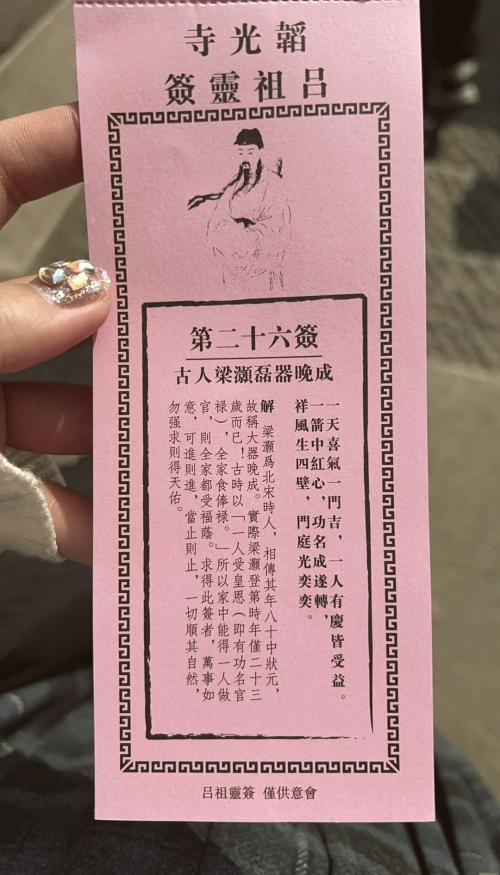 韜光寺
呂祖靈簽
第二十六簽
古人梁灝磊器晚成
一天喜氣一門吉，一人有慶皆受益。
一箭中紅心，功名成遂轉，
祥風生四壁，門庭光奕奕。
解 梁灝爲北宋時人，相傳其年八十中狀元，
故稱大器晚成。實際梁灝登第時年僅二十三
歲而已！古時以「一人受皇恩（即有功名官
禄），全家食俸禄。」所以家中能得一人做
官，則全家都受福蔭。求得此簽者，萬事如
意，可進則進，當止則止，一切順其自然，
勿强求則得天佑。
呂祖靈簽 僅供意會